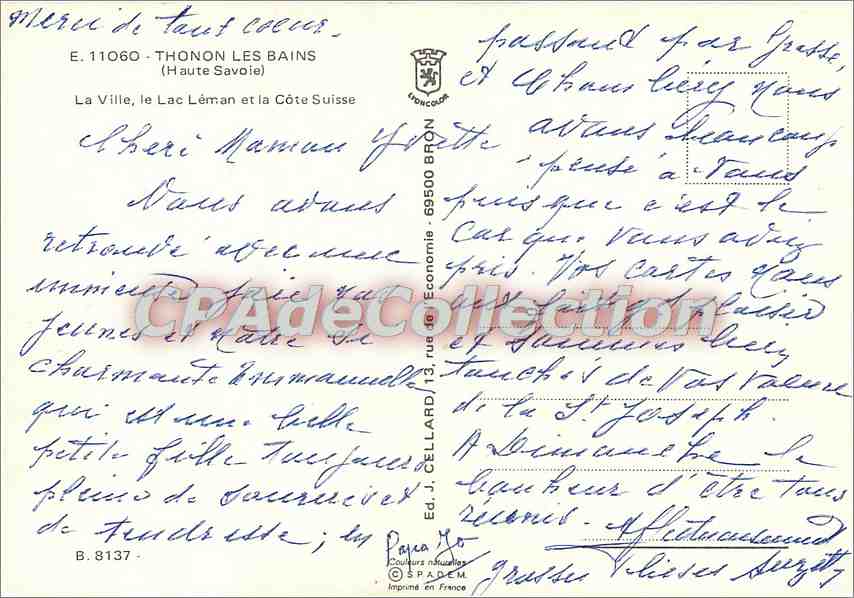 Merci de tout coeur.
E. 11060 - THONON LES BAINS
(Haute Savoie)
La Ville, le Lac Léman et la Côte Suisse
LYONCOLOR
Cheri Maman Yvette
Nous avons
retrouvé avec une
immense joie nos
jeunes et notre si
charmante Emmanuelle
qui est une belle
petite fille toujours
pleine de sourires et
de tendresse ; en
B. 8137 -
Ed. J. CELLARD / 13, rue de l'Economie - 69500 BRON
Couleurs naturelles
© S.P.A.D.E.M.
Imprimé en France
passant par Grasse,
et Chambéry nous
avons beaucoup
pensé à vous
puisque c'est le
car que vous aviez
pris. Vos cartes nous
ont fait plaisir
et sommes bien
touchés de vos voeux
de la St Joseph.
A Dimanche le
bonheur d'être tous
réunis. Affectueusement
Papa Jo
grosses bises Suzette
CPAdeCollection